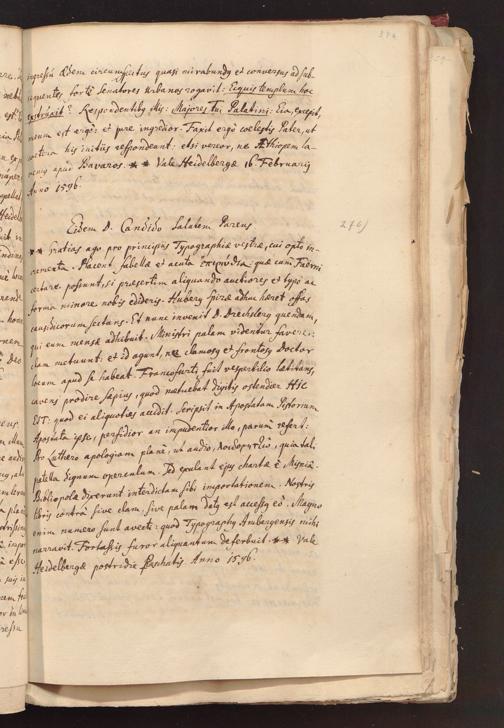 ingressu Ædem circumspectus quasi mirabundus et conversus ad sub-
sequentes fortè Senatores Urbanos rogavit: Ecquis templum hoc
exstruxit? Respondentibus illis: Majores Tui Palatini: Eia, excepit,
meum est ergò et jure ingredior. Faxit ergò coelestis Pater, ut
cætera his initiis respondeant: etsi vereor, ne Æthiopem la-
veris apud Bavaros. ** Vale Heidelbergæ 16. Februarij
Anno 1596.
Eidem D. Candido Salutem Pareus
276)
** Gratias ago pro principiis Typographiæ vestræ, cui opto in-
crementa. Placent fabellæ et acuta quæ cum Fabri
certare possunt, si præsertim aliquando auctiores et typo in
forma minore nobis edideris. Huberus Spiræ adhuc hæret offas
causidicorum sectans. Et nunc invenit D. Drechslerum quendam,
qui eum mensæ adhibuit. Ministri palam videntur favere:
clam metuunt: et id agunt, ne clamosus et frontosus Doctor
locum apud se habeat. Francofurti fuit vespertilio latitans,
cavens prodire sæpius, quod metuebat digitis ostendier Hic
EST: quod ei aliquoties accidit. Scripsit in Apostatam Pistorium
Apostata ipse, perfidior an impudentior illo, parum refert:
Pro Luthero apologiam planè, ut audio, quia tali
patella dignum operculum. Id exulant ejus chartæ è Misnia.
Bibliopolæ dixerunt interdictam sibi importationem. Nostris
libris contrà sive clam, sive palam datus est accessus eò. Magno
enim numero sunt avecti: quod Typographus Ambergensis mihi
narravit. Fortassis furor aliquantum deferbuit. ** Vale
Heidelbergæ postridie Paschatis Anno 1596.